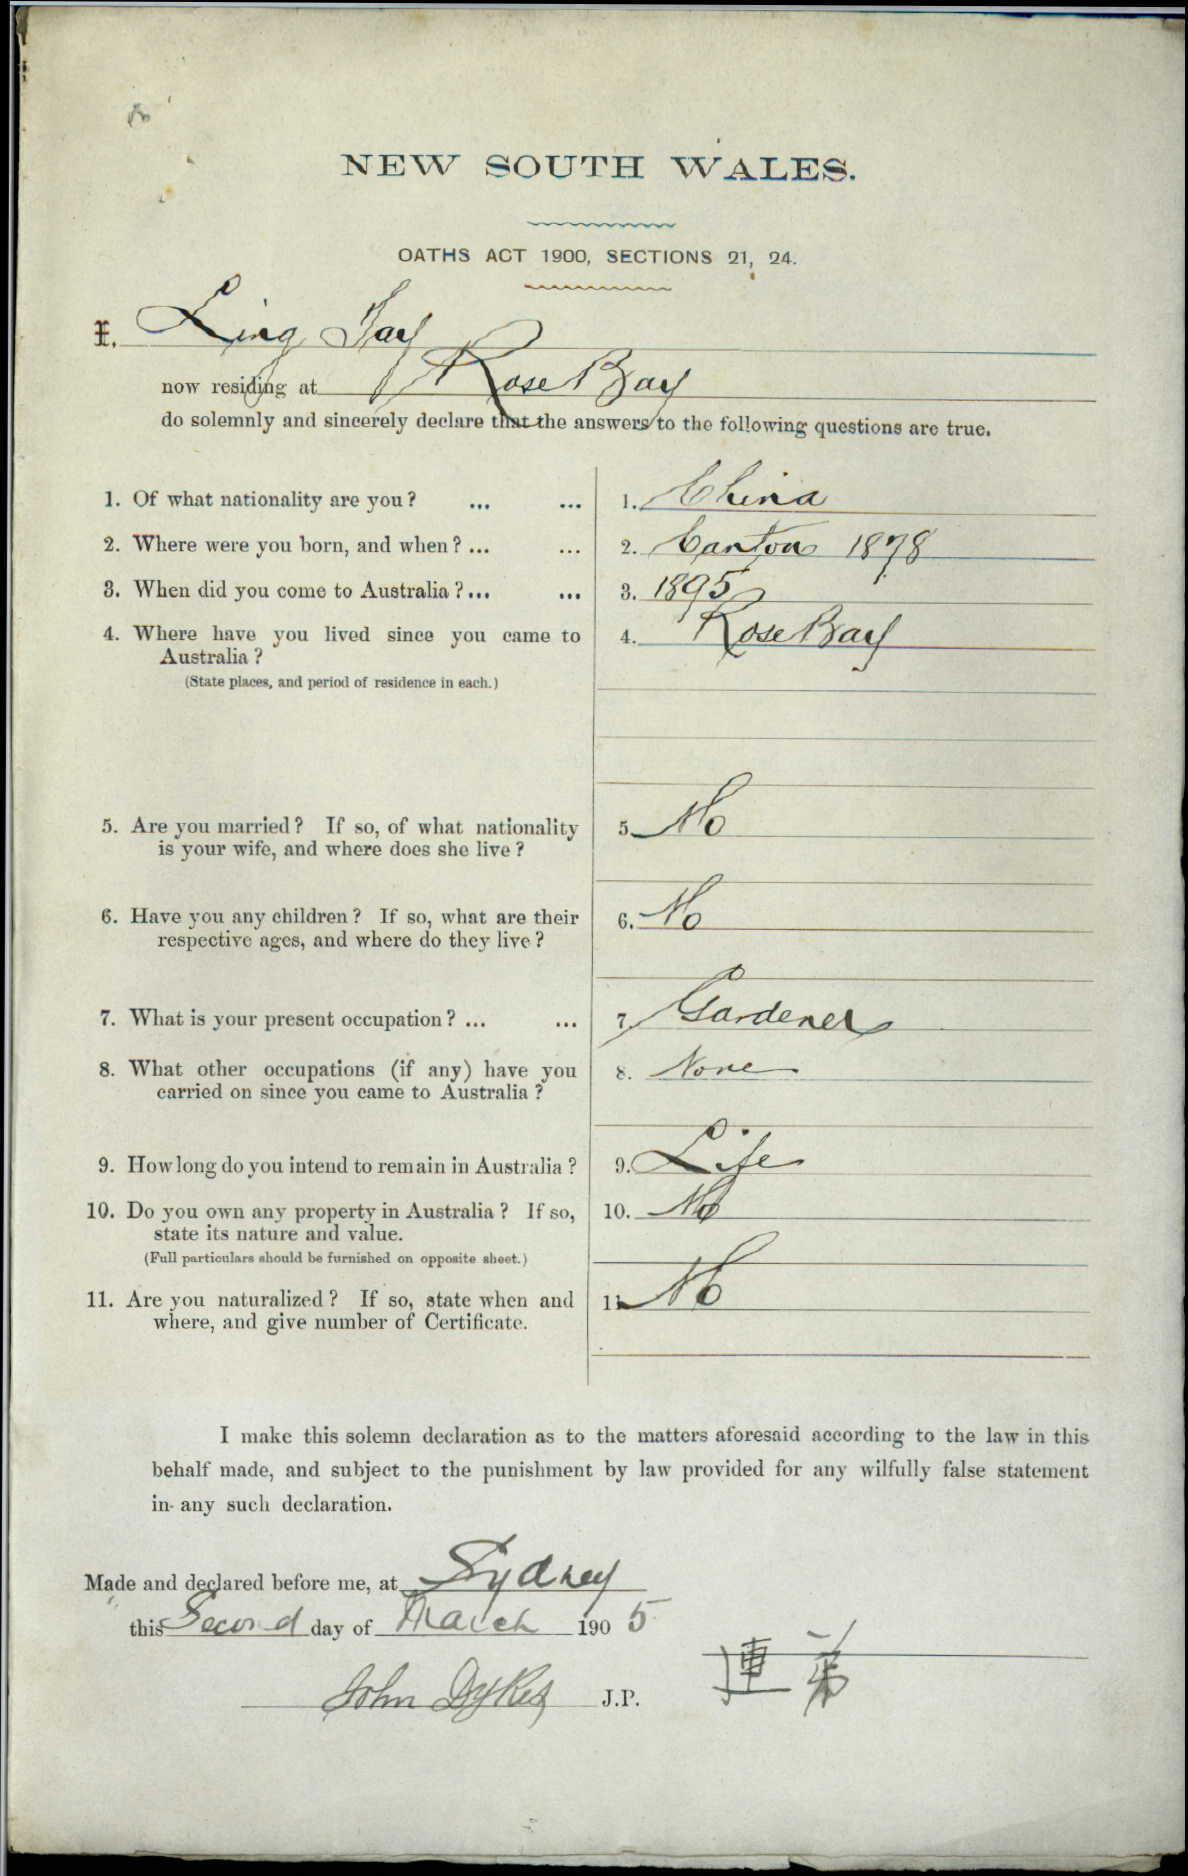 NEW SOUTH WALES.
OATHS ACT 1900, SECTIONS 21, 24.
I, Ling Bay
now residing at Rose Bay
do solemnly and sincerely declare that the answers to the following questions are true.
1. Of what nationality are you? ... ... 1. China
2. Where were you born, and when? ... ... 2. Canton 1878
3. When did you come to Australia? ... ... 3. 1895
4. Where have you lived since you came to 4. Rose Bay
Australia?
(State places, and period of residence in each.)
5. Are you married? If so, of what nationality 5. No
is your wife, and where does she live?
6. Have you any children? If so, what are their 6. No
respective ages, and where do they live?
7. What is your present occupation? ... ... 7. Gardener
8. What other occupations (if any) have you 8. None
carried on since you came to Australia?
9. How long do you intend to remain in Australia? 9. Life
10. Do you own any property in Australia? If so, 10. No
state its nature and value.
(Full particulars should be furnished on opposite sheet.)
11. Are you naturalized? If so, state when and 11. No
where, and give number of Certificate.
I make this solemn declaration as to the matters aforesaid according to the law in this
behalf made, and subject to the punishment by law provided for any wilfully false statement
in any such declaration.
Made and declared before me, at Sydney
this Second day of March 1905
John Dykes J.P. 連弟